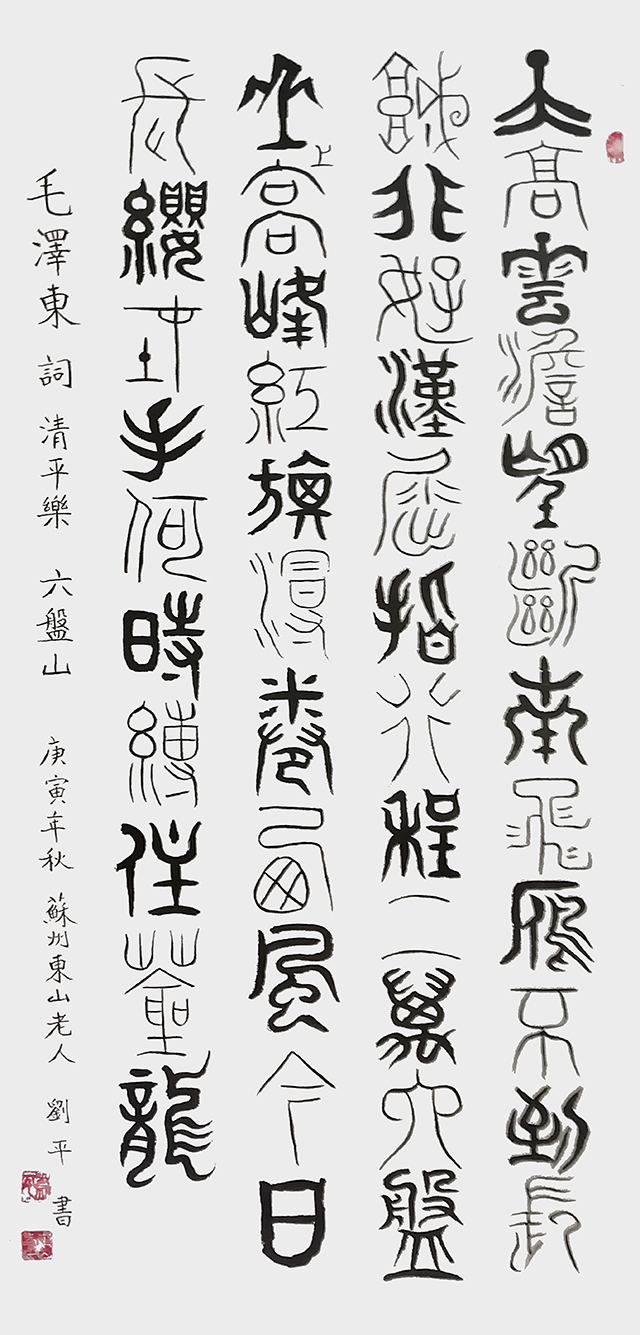 天高雲澹望斷南飛雁不到長
城非好漢屈指行程二萬六盤
山上高峰紅旗漫卷西風今日
長纓在手何時縛住蒼龍
毛澤東 詞 清平樂 六盤山 庚寅年秋 蘇州東山老人 劉平 書